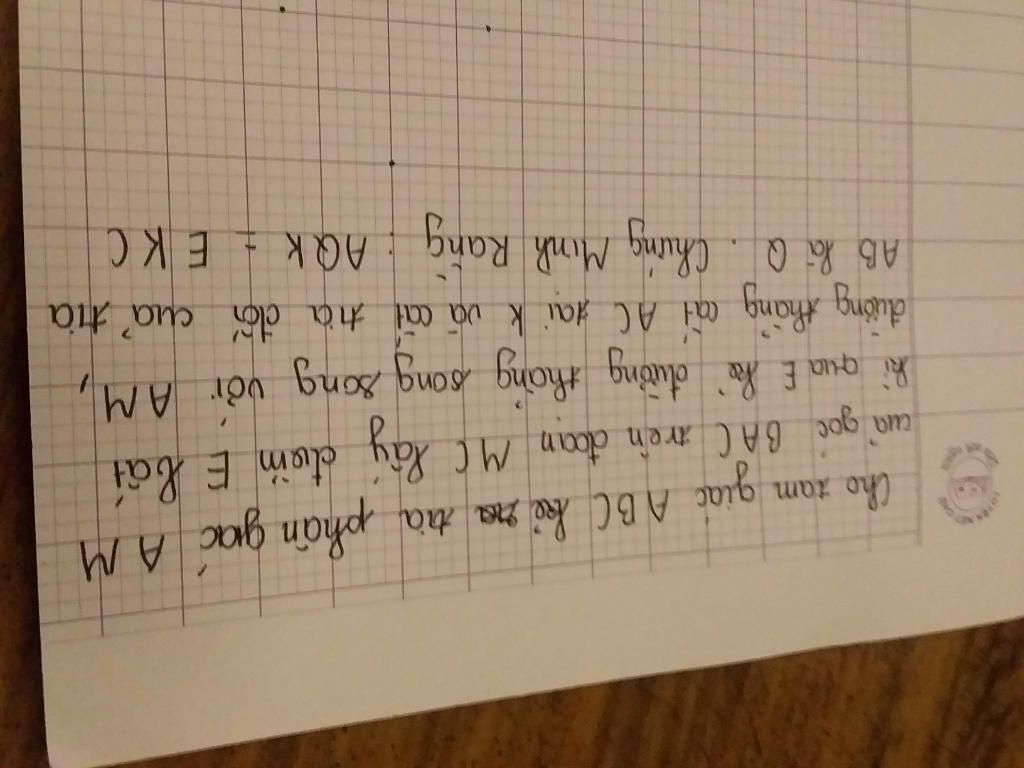 Cho tam giác ABC kẻ tia phân giác AM
của góc BAC trên đoạn MC lấy điểm E bất
kì qua E kẻ đường thẳng song song với AM,
đường thẳng cắt AC tại K và cắt tia đối của tia
AB tại Q. Chứng Minh Rằng: AQK = EKC